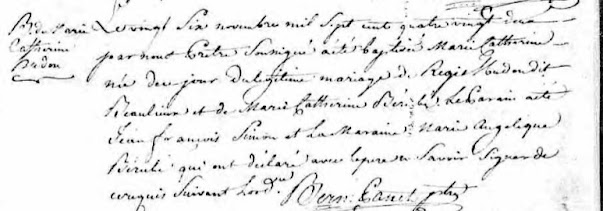 B. de Marie
Catherine
hudon
Le vingt Six novembre mil Sept cent quatre vingt deux
par nous Prêtre Soussigné a été baptisé Marie Catherine
née de ce jour du légitime mariage de Regis Hudon dit
Beaulieu et de Marie Catherine Bérubé Le Parain a été
Jean françois Sirois et La Maraine Marie Angelique
Bérubé qui ont déclaré avec le pere ne Savoir Signer de
ce requis Suivant Lord.ce
Bern
ptre